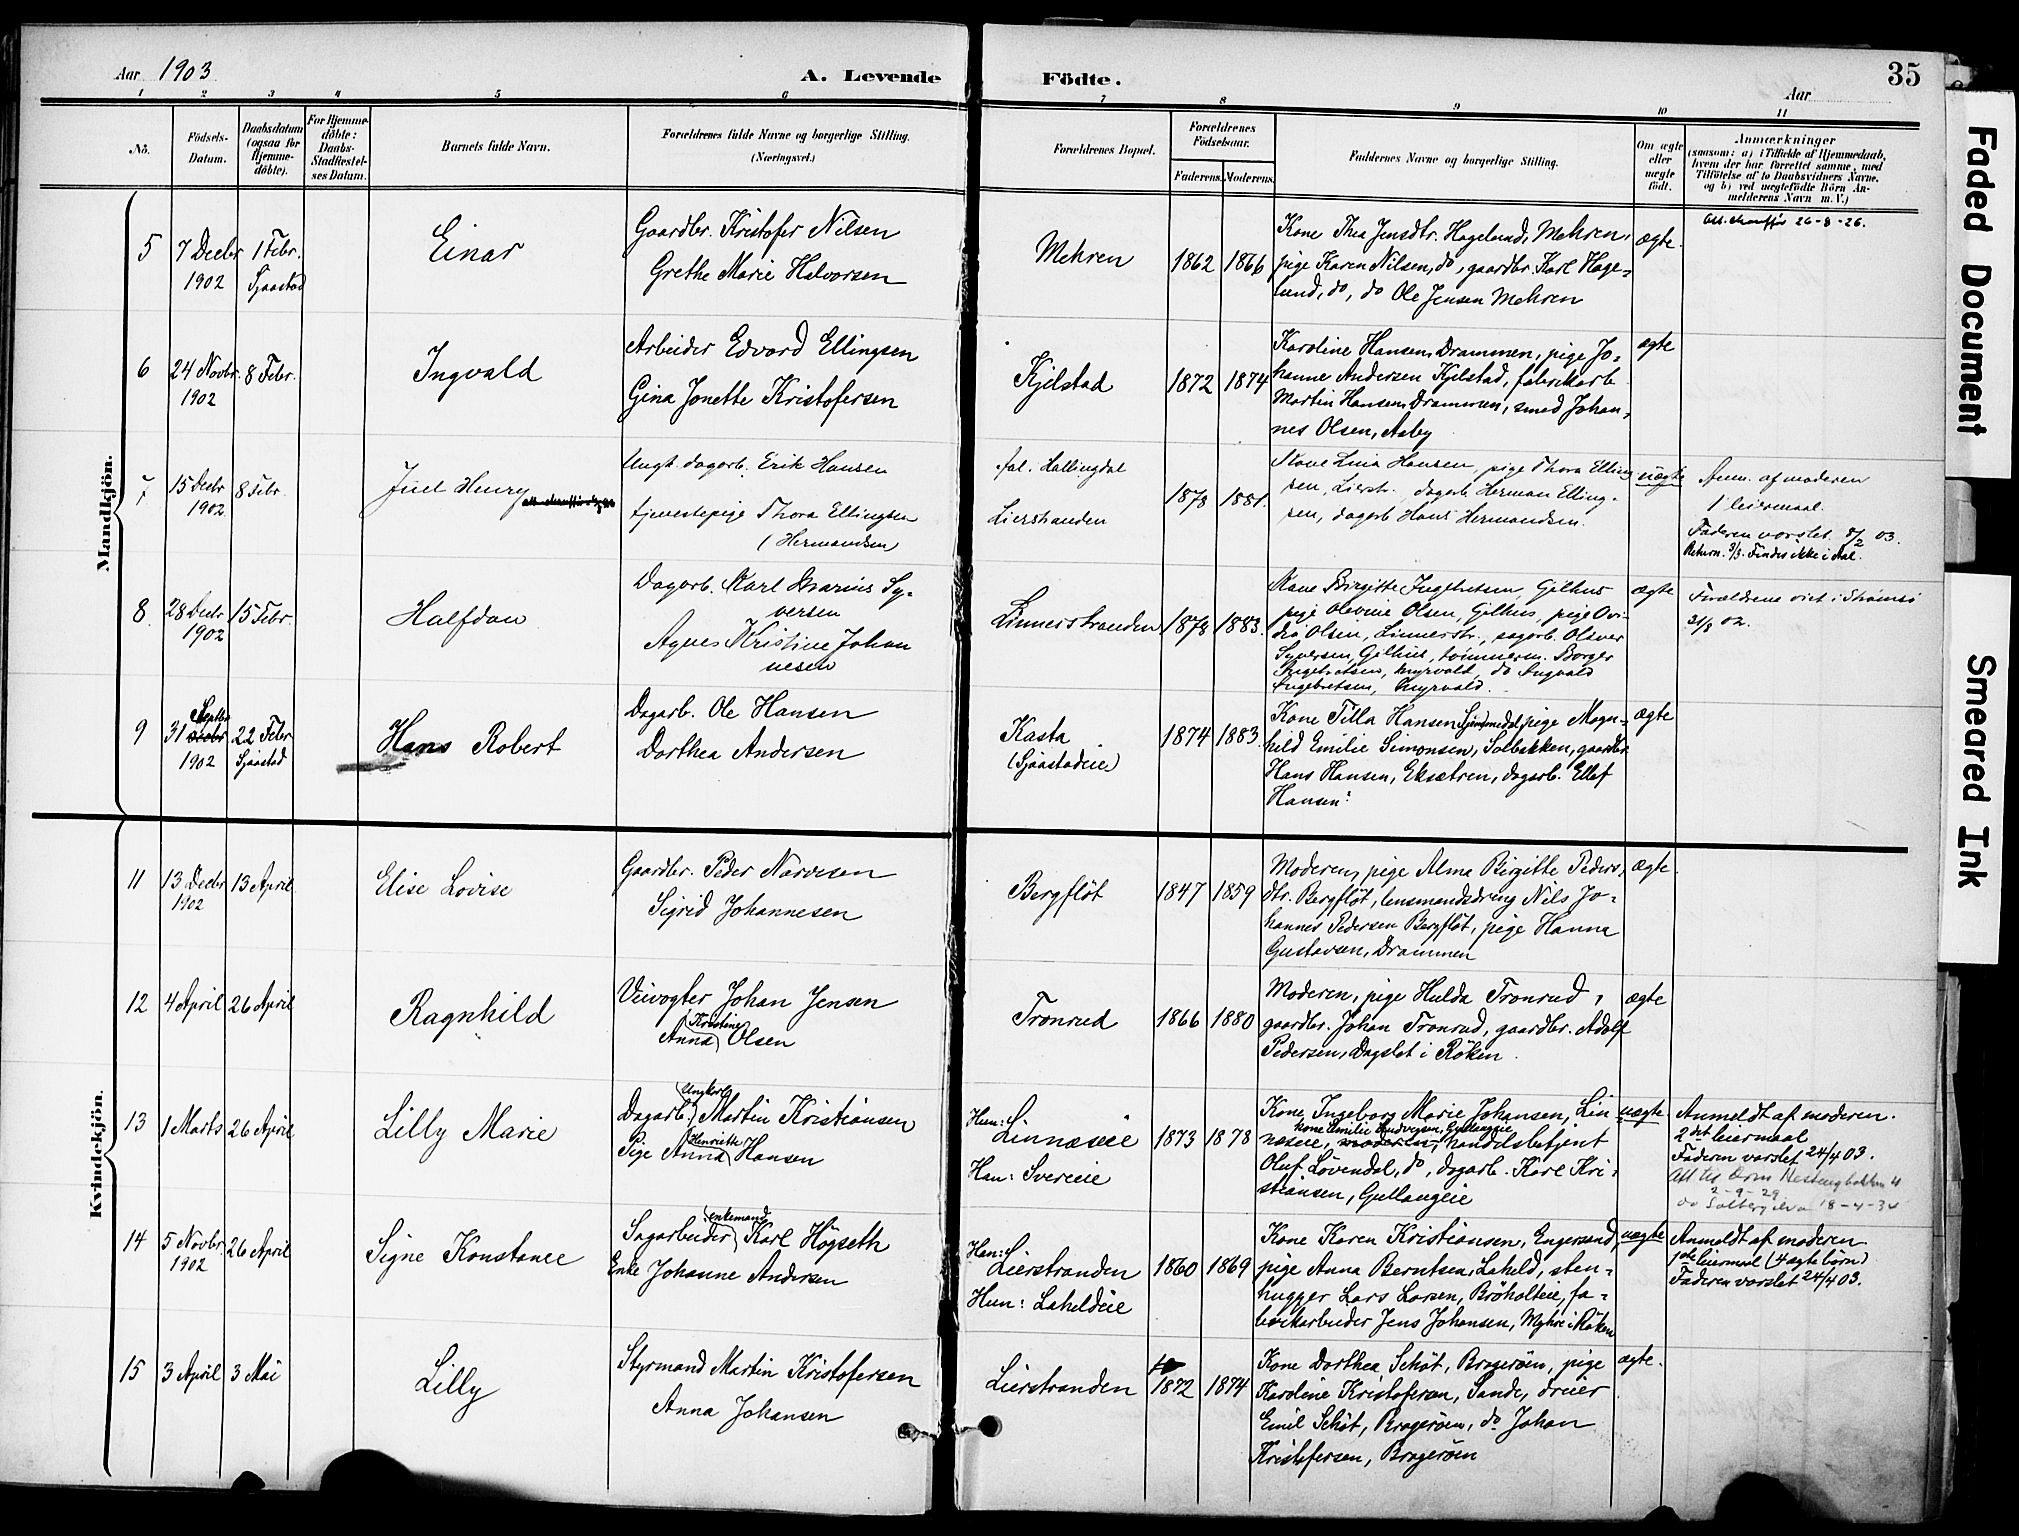 Aar 1903
A. Levende
Födte.
Aar
35
1
2
3
4
5
6
7
8
9
10
11
No.
Födsels-
Datum.
Daabsdatum
(ogsaa for
Hjemme-
döbte).
For Hjemme-
döbte:
Daabs-
Stadfæstel-
ses Datum.
Barnets fulde Navn.
Forældrenes fulde Navne og borgerlige Stilling.
(Næringsvei.)
Forældrenes Bopæl.
Forældrenes
Födselsaar.
Faderens.
Moderens.
Faddernes Navne og borgerlige Stilling.
Om ægte
eller
uægte
födt.
Anmærkninger
(saasom: a) i Tilfælde af Hjemmedaab,
hvem der har forrettet samme, med
Tilföielse af to Daabsvidners Navne,
og b) ved uægtefödte Börn An-
melderens Navn m. V.)
Mandkjön.
5
7 Decbr
1902
1 Febr.
Sjaastad
Einar
Gaardbr. Kristofer Nilsen
Grethe Marie Halvorsen
Mehren
1862
1866
Kone Thea Jensdtr. Hagelund, Mehren,
pige Karen Nilsen, do, gaardbr. Karl Hage-
lund, do, do Ole Jensen Mehren
ægte.
26-8-26.
6
24 Novbr.
1902
8 Febr.
Ingvald
Arbeider Edvard Ellingsen
Gina Jonette Kristofersen
Kjelstad
1872
1874
Karoline Hansen, Drammen, pige Jo-
hanne Andersen Kjelstad, fabrikarb.
Martin Hansen, Drammen, smed Johan-
nes Olsen, Aaby
ægte
7
15 Decbr
1902
8 Febr
Juel Henry
Ungk. dagarb. Erik Hansen
tjenestepige Thora Ellingsen
(Hermansen)
Aal i Hallingdal
Lierstranden
1878
1881.
Kone Lina Hansen, pige Thora Elling-
sen, Lierstr. dagarb. Herman Elling-
sen, dagarb Hans Hermandsen.
uægte
Anm. af moderen
1 leiermaal.
Faderen varslet 8/2 03.
Return. 3/3. Findes ikke i Aal.
8
28 Decbr
1902
15 Febr.
Halfdan
Dagarb. Karl Marius Sy-
versen
Agnes Kristine Johan
nesen
Linnerstranden
1878
1883.
Kone Birgitte Ingebretsen, Gilhus
pige Olevine Olsen, Gilhus, pige Ovi-
dia Olsen, Linnerstr., dagarb. Oliver
Syversen, Gilhus, tömmerm. Borger
Ingebretsen, Myrvold, do Ingvald
Ingebretsen, Myrvold.
ægte
Forældrene viet i Strömsö
31/8 02.
9
31 Decbr
1902
22 Febr
Sjaastad
Hans Robert
Dagarb. Ole Hansen
Dorthea Andersen
Kasta
(Sjaastadeie)
1874
1883.
Kone Tilla Hansen pige Magn-
hild Emilie Simonsen, Solbakken, gaardbr.
Hans Hansen, Eksætren, dagarb. Ellef
Hansen
ægte
Kvindekjön.
11
13 Decbr
1902
13 April
Elise Lovise
Gaardbr. Peder Narvesen
Sigrid Johannesen
Bergflöt
1847
1859
Moderen, pige Alma Birgitte Peders-
dtr. Bergflöt, lensmandsdreng Nils Jo-
hannes Pedersen Bergflöt, pige Hanna
Gustavsen, Drammen
ægte.
12
4 April
26 April
Ragnhild
Veivogter Johan Jensen
Kristine
Anna Olsen
Tronrud
1866
1880
Moderen, pige Hulda Tronrud,
gaardbr. Johan Tronrud, gaardbr. Adolf
Pedersen, Dagslet i Röken.
ægte
13
1 Marts
26 April
Lilly Marie
Ungkarl
Dagarb. Martin Kristiansen
Henriette
Pige Anna Hansen
Hun: Linnæseie
Han: Svereie
1873
1878
Kone Ingeborg Marie Johansen, Lin
kone Emilie Ludvigsen, Gullaugeie
næseie, moderen, handelsbetjent
Oluf Lövendal, do, dagarb. Karl Kri-
stiansen, Gullaugeie
uægte
Anmeldt af moderen.
2det leiermaal
Faderen varslet 24/4 03.
2-9-29
18-4-34
14
5 Novbr
1902
26 April
Signe Konstance
enkemand
Sagarbeider Karl Högseth
Enke Johanne Andersen
Han: Lierstranden
Hun: Laheldeie
1860
1869
Kone Karen Kristiansen, Engersand,
pige Anna Berntsen, Laheld, sten-
hugger Lars Larsen, Bröholteie, fa-
brikarbeider Jens Johansen, Myhre i Röken
uægte
Anmeldt af moderen
1ste leiermaal (4 ægte börn)
Faderen varslet 24/4 03.
15
3 April
3 Mai
Lilly
Styrmand Martin Kristofersen
Anna Johansen
Lierstranden
1872
1874
Kone Dorthea Schöt, Brageröen, pige
Karoline Kristofersen, Sande, dreier
Emil Schöt, Brageröen, do. Johan
Kristofersen, Brageröen
ægte.
Faded Document
Smeared Ink